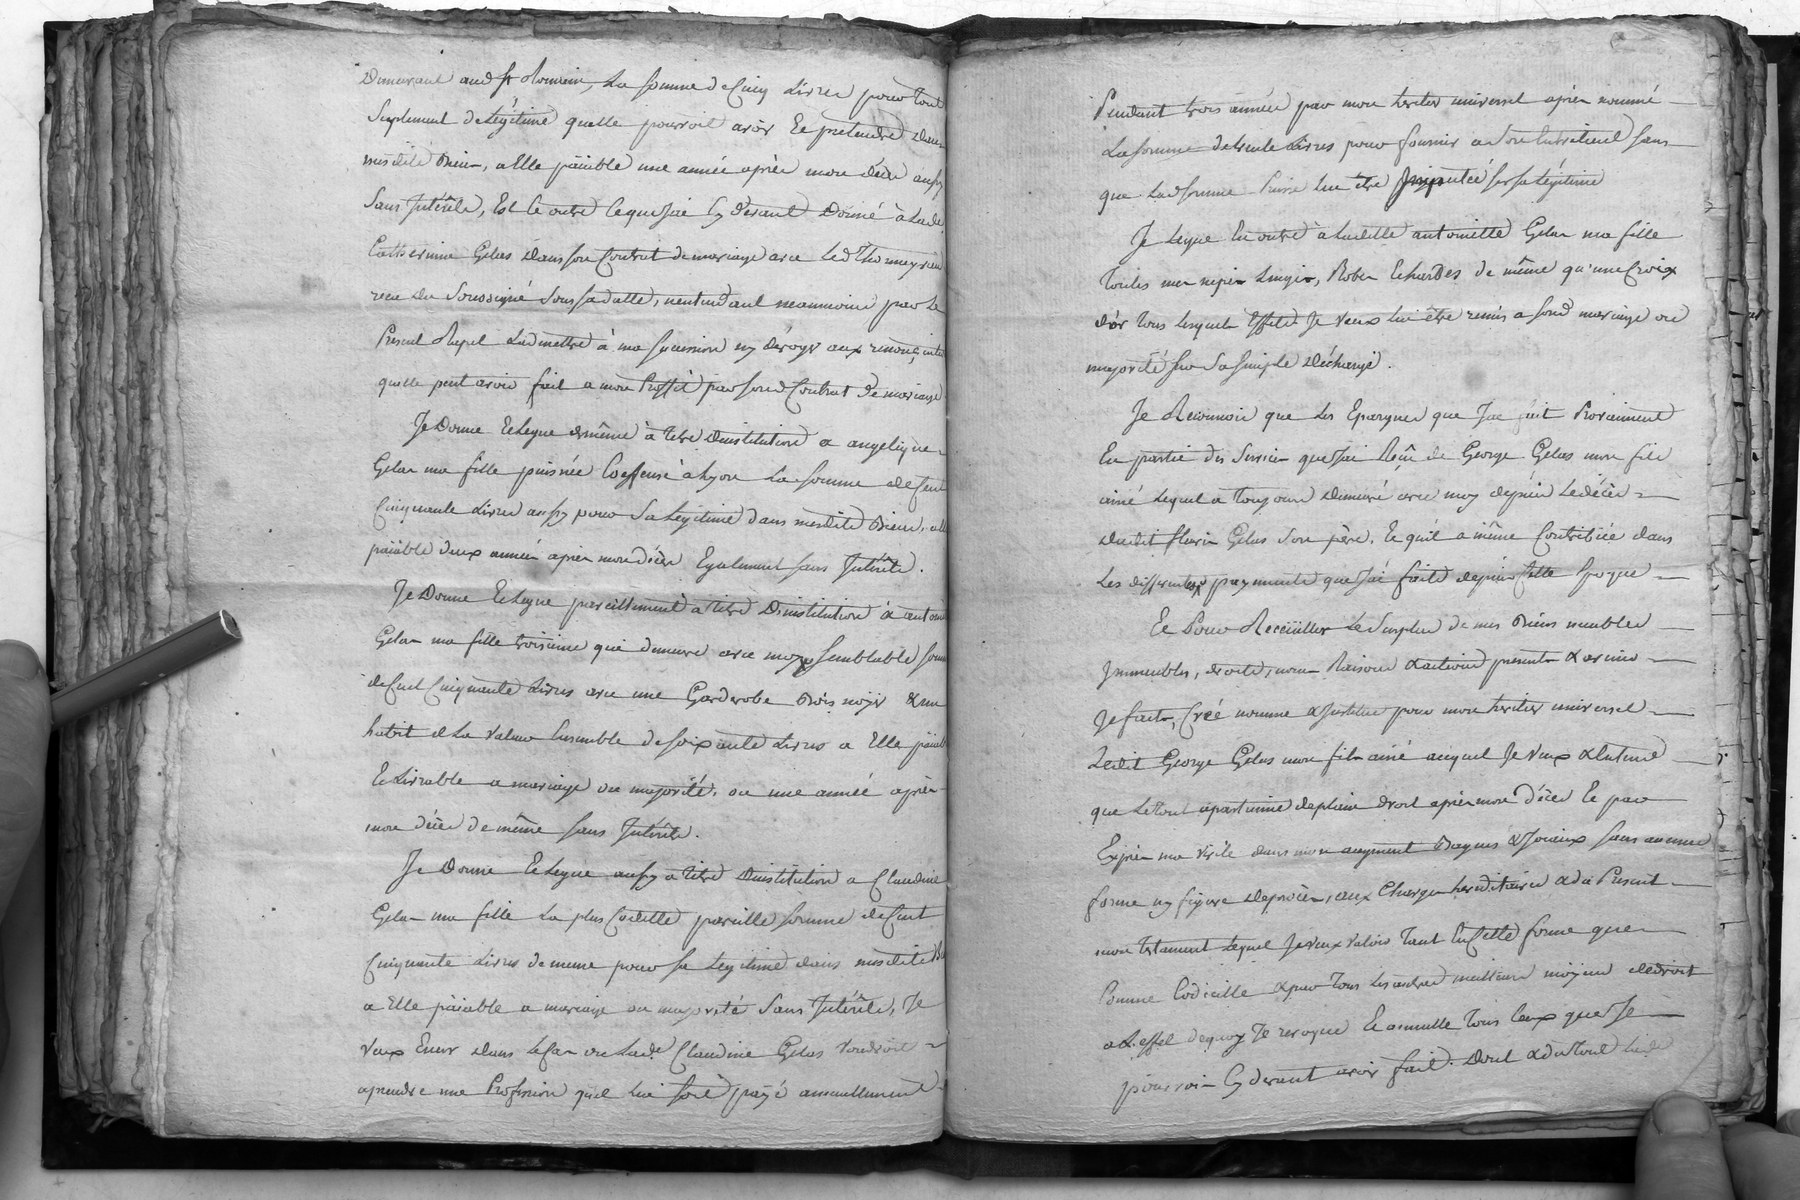 Demeurant aud St Romain, La somme de Cinq Livres pour tout
Suplement de Légitime quelle pourroit avoir Et pretendre dans
mesdits Biens, a Elle païable une année après mon décès aussy
Sans Intérêts, Est le outre ce que J'ai Cy devant Donné à Lade
Catherine Gelas dans son Contrat de mariage avec Led
recu du Soussigné Sous sa datte, nentendant neanmoins par le
Present Legat Ladmettre à ma succession ny déroger aux
quelle peut avoir fait a mon Proffit par sond Contrat De mariage
Je Donne Et Legue de même à titre Dinstitution a angelique
Gelas ma fille puisnée Coeffeuse à Lyon La somme de Cent
Cinquante Livres aussy pour Sa Légitime dans mesdits Biens, a Elle
païable deux années après mon décès Egalement sans Intérêts.
Je Donne Et Legue pareillement a titre Dinstitution à antoinette
Gelas ma fille troisieme qui demeure avec moy Semblable somme
de Cent Cinquante Livres avec une Garderobe Bois noÿer & un
habit de La valeur Ensemble de soixante Livres a Elle païable
Et Livrable a mariage ou majorité, ou une année après
mon décès de même sans Intérêts.
Je Donne Et Legue aussy a titre Dinstitution a Claudine
Gelas ma fille La plus Cadette pareille somme de Cent
Cinquante Livres de meme pour sa Légitime dans mesdits Biens
a Elle païable a mariage ou majorité Sans Intérêts, Je
veux Encor dans Le Cas ou Lade Claudine Gelas voudroit
aprendre une Profession qu'il Lui soit payé annuellement
Pendant trois années par mon heritier universel après nommé
La somme de trente Livres pour fournir a son Entretient sans
que Lad somme Puisse lui être Imputée sur sa Légitime
Je Legue En outre à Laditte antoinette Gelas ma fille
Toutes mes nipes Linges, Robes Et hardes de même qu'une Croix
d'or tous lesquels Effets Je veux lui être remis a sond mariage ou
majorité sur Sa Simple Décharge.
Je Reconnois que Les Epargnes que J'ai fait Proviennent
En partie des Services que J'ai Reçû de George Gelas mon fils
ainé Lequel a toujours demeuré avec moy depuis Le décès
dudit Gelas Son père, Et qu'il a même Contribüée dans
Les differents payments que J'ai faits depuis Cette Epoque
Et Pour Recüeiller Le Surplus de mes Biens meubles
Immeubles, droits, noms Raisons & actions presents & avenir
Je fait, Créé nomme & Jnstitue pour mon heritier universel
Ledit George Gelas mon fils ainé auquel Je veux & Entend
que Le tout apartienne de plein droit après mon décès Et par
Exprès ma virile dans mon augment Bagues & Joyaux sans aucune
forme ny figure de procès, aux Charges hereditaires & du Present
mon testament Lequel Je veux valoir tant En Cette forme que
Comme Codicille & par tous Les autres meilleurs moyens de droit
a L'effet de quoy Je revoque Et annulle tous Ceux que Je
pourrois Cy devant avoir fait. Dont & du tout Lade